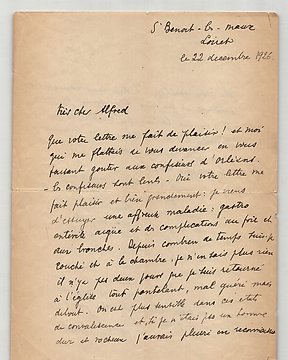 St Benoit-s-
Loiret
le 22 décembre 1926
très cher Alfred
Que votre lettre me fait de plaisir ! et moi
qui me flattais de vous devancer en vous
faisant goûter aux confiseurs d'Orléans.
les confiseurs sont lents - Oui votre lettre me
fait plaisir et bien grandement : je viens
d'essuyer une affreuse maladie : gastro
entérite aigue et des complications au foie et
aux bronches. Depuis combien de temps suis-je
couché et à la chambre. je n'en sais plus rien
il n'y a pas deux jours que je suis retourné
à l'église tout pantelant, mal guéri mais
debout. On est plus sensible dans ces états
de convalescence et, si je n'étais pas un homme
dur et rocheux j'aurais pleuré en